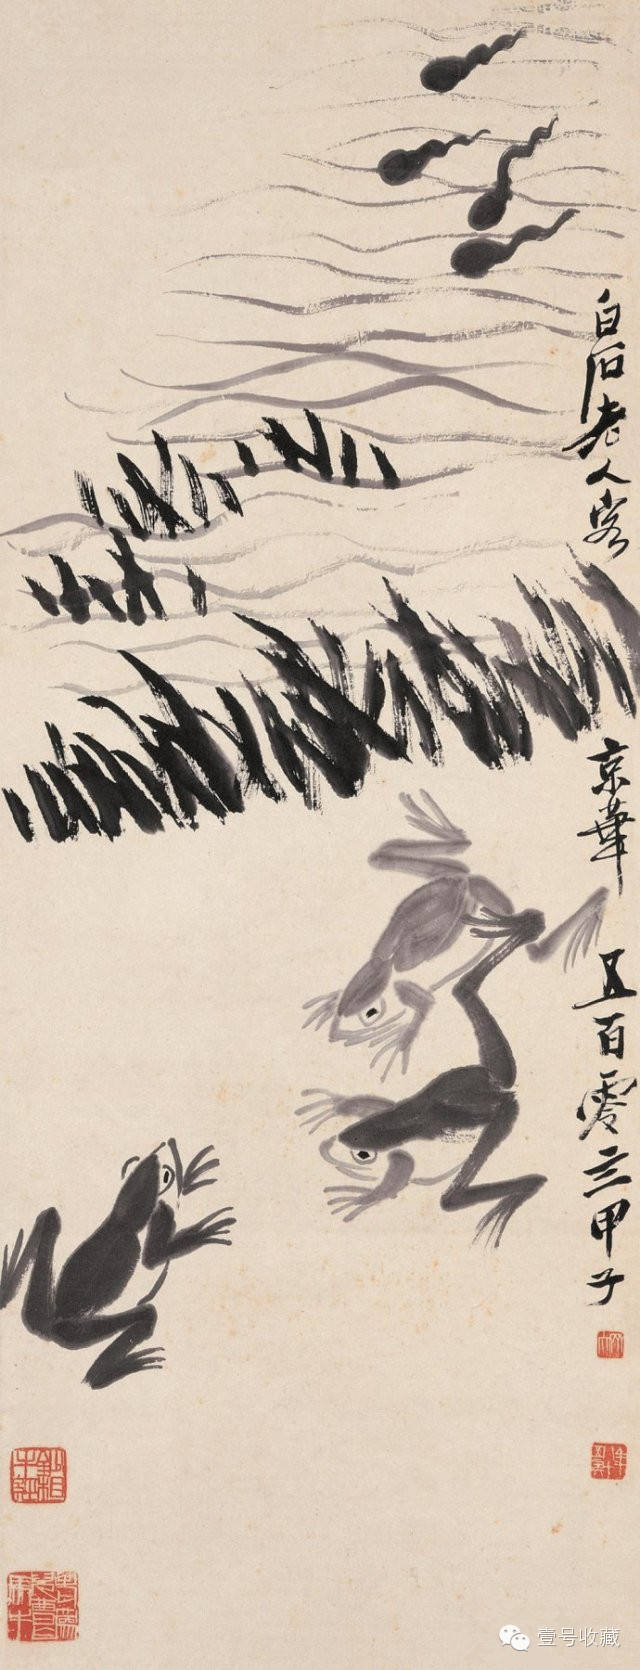 白石老人客京華五百零三甲子
壹号收藏